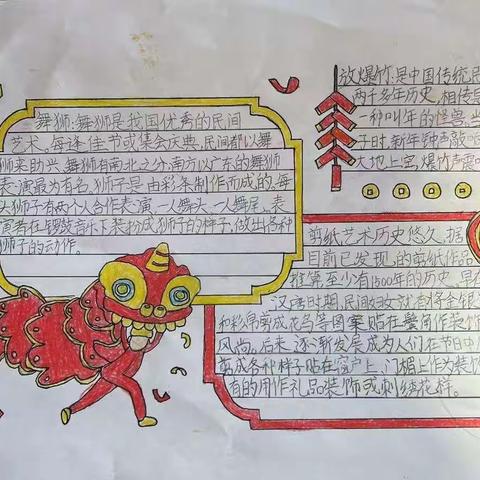 舞狮:舞狮是我国优秀的民间
艺术,每逢佳节或集会庆典,民间都以舞
狮来助兴,舞狮有南北之分,南方以广东的舞狮
表演最为有名,狮子是由彩条制作而成的,每
头狮子有两个人合作表演,一舞头,一舞尾,表
演者在锣鼓音乐下装扮成狮子的样子,做出各种
狮子的动作。
放爆竹是中国传统民
两千多年历史,相传是
一种叫年的怪兽,
子时,新年钟声敲响
大地上空,爆竹声震
剪纸艺术历史悠久,据
目前已发现的剪纸作品
推算至少有1500年的历史,早在
汉唐时期,民间妇女就有将金银
和彩帛剪成花鸟等图案贴在鬓角作装饰
风尚。后来,逐渐发展成为人们在节日中
剪成各种样子贴在窗户上、门楣上作为装饰
有的用作礼品装饰或刺绣花样。